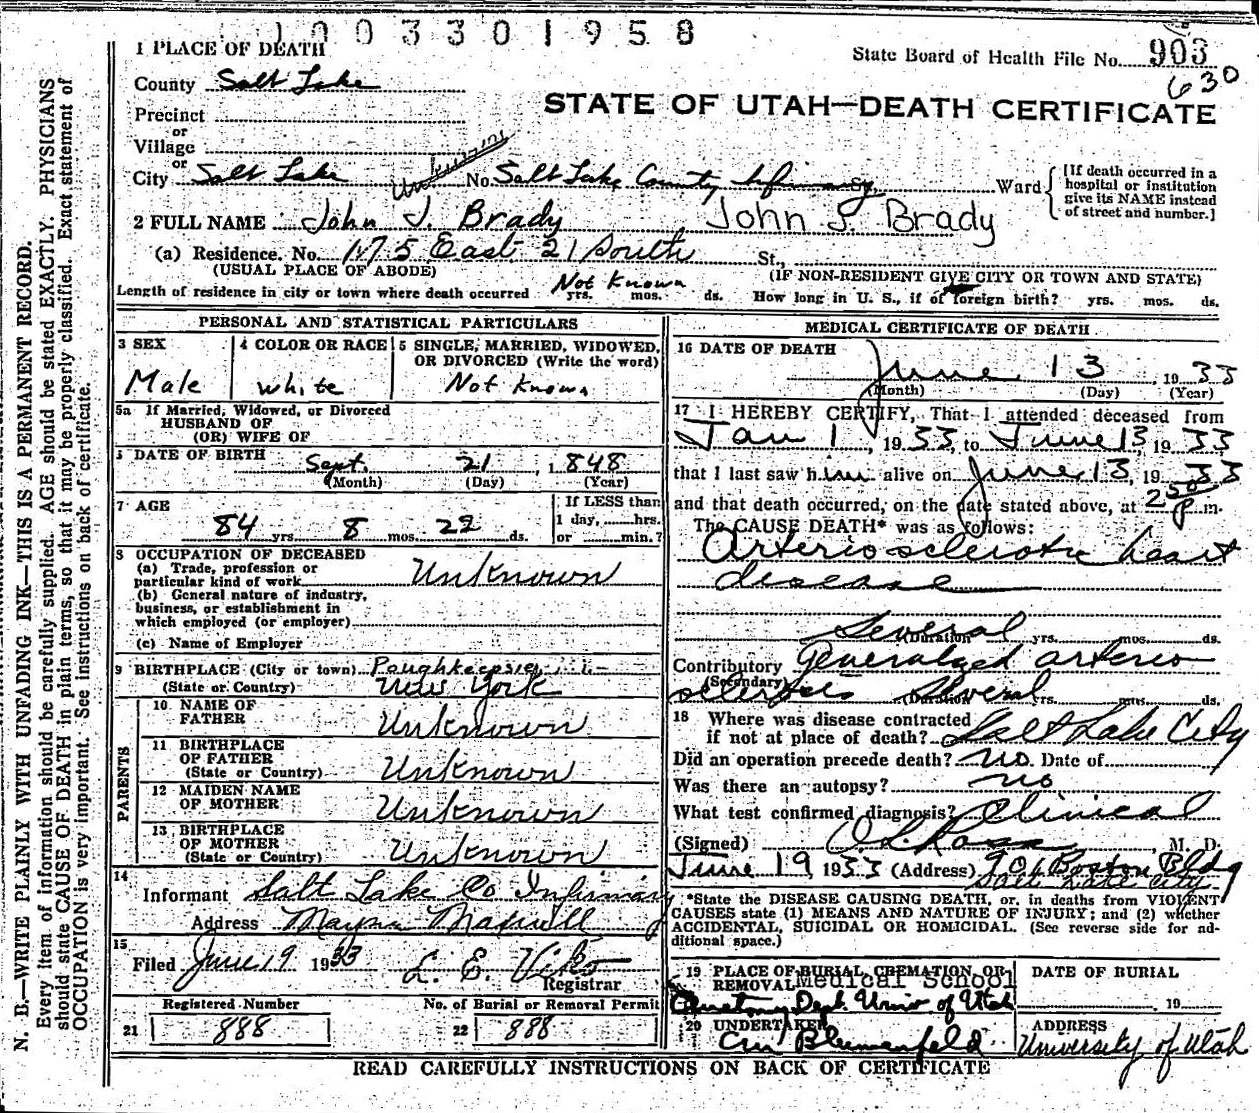 1003301958
State Board of Health File No. 903
630
STATE OF UTAH—DEATH CERTIFICATE
1 PLACE OF DEATH
County Salt Lake
Precinct
or
Village
or
City Salt Lake No. Salt Lake County Infirmary Ward
Unknown
[If death occurred in a
hospital or institution
give its NAME instead
of street and number.]
2 FULL NAME John J. Brady John J. Brady
(a) Residence. No. 1175 East 21 South St.,
(USUAL PLACE OF ABODE) (IF NON-RESIDENT GIVE CITY OR TOWN AND STATE)
Length of residence in city or town where death occurred Not Known yrs. mos. ds. How long in U. S., if of foreign birth? yrs. mos. ds.
PERSONAL AND STATISTICAL PARTICULARS
3 SEX
Male
4 COLOR OR RACE
white
5 SINGLE, MARRIED, WIDOWED,
OR DIVORCED (Write the word)
Not Known
5a If Married, Widowed, or Divorced
HUSBAND OF
(OR) WIFE OF
DATE OF BIRTH Sept. 21, 1848
(Month) (Day) (Year)
7 AGE
84 yrs. 8 mos. 22 ds.
If LESS than
1 day, hrs.
or min.?
8 OCCUPATION OF DECEASED
(a) Trade, profession or
particular kind of work Unknown
(b) General nature of industry,
business, or establishment in
which employed (or employer)
(c) Name of Employer
9 BIRTHPLACE (City or town) Poughkeepsie
(State or Country) New York
PARENTS
10 NAME OF
FATHER Unknown
11 BIRTHPLACE
OF FATHER
(State or Country) Unknown
12 MAIDEN NAME
OF MOTHER Unknown
13 BIRTHPLACE
OF MOTHER
(State or Country) Unknown
14
Informant Salt Lake Co Infirmary
Address Mayna Maxwell
15
Filed June 19 1933 L. E. Viko
Registrar
Registered Number
21 888
No. of Burial or Removal Permit
22 888
MEDICAL CERTIFICATE OF DEATH
16 DATE OF DEATH
June 13, 1933
(Month) (Day) (Year)
17 I HEREBY CERTIFY, That I attended deceased from
Jan 1, 1933, to June 13, 1933
that I last saw him alive on June 13, 1933
and that death occurred, on the date stated above, at 250 p.m.
The CAUSE DEATH* was as follows:
Arteriosclerotic heart
disease
Several (Duration) yrs. mos. ds.
Contributory Generalized arterio
(Secondary)
sclerosis Several (Duration) yrs. mos. ds.
18 Where was disease contracted
if not at place of death? Salt Lake City
Did an operation precede death? no. Date of
Was there an autopsy? no
What test confirmed diagnosis? Clinical
(Signed) O L Ross, M. D.
June 19, 1933 (Address) 901 Boston Bldg
Salt Lake City
*State the DISEASE CAUSING DEATH, or, in deaths from VIOLENT
CAUSES state (1) MEANS AND NATURE OF INJURY; and (2) whether
ACCIDENTAL, SUICIDAL OR HOMICIDAL. (See reverse side for ad-
ditional space.)
19 PLACE OF BURIAL, CREMATION, OR
REMOVAL Medical School
Anatomy Dept. Univ of Utah
DATE OF BURIAL
19
20 UNDERTAKER
Cm Blumenfeld
ADDRESS
University of Utah
READ CAREFULLY INSTRUCTIONS ON BACK OF CERTIFICATE
N. B.—WRITE PLAINLY WITH UNFADING INK—THIS IS A PERMANENT RECORD.
Every item of information should be carefully supplied. AGE should be stated EXACTLY. PHYSICIANS
should state CAUSE OF DEATH in plain terms, so that it may be properly classified. Exact statement of
OCCUPATION is very important. See instructions on back of certificate.